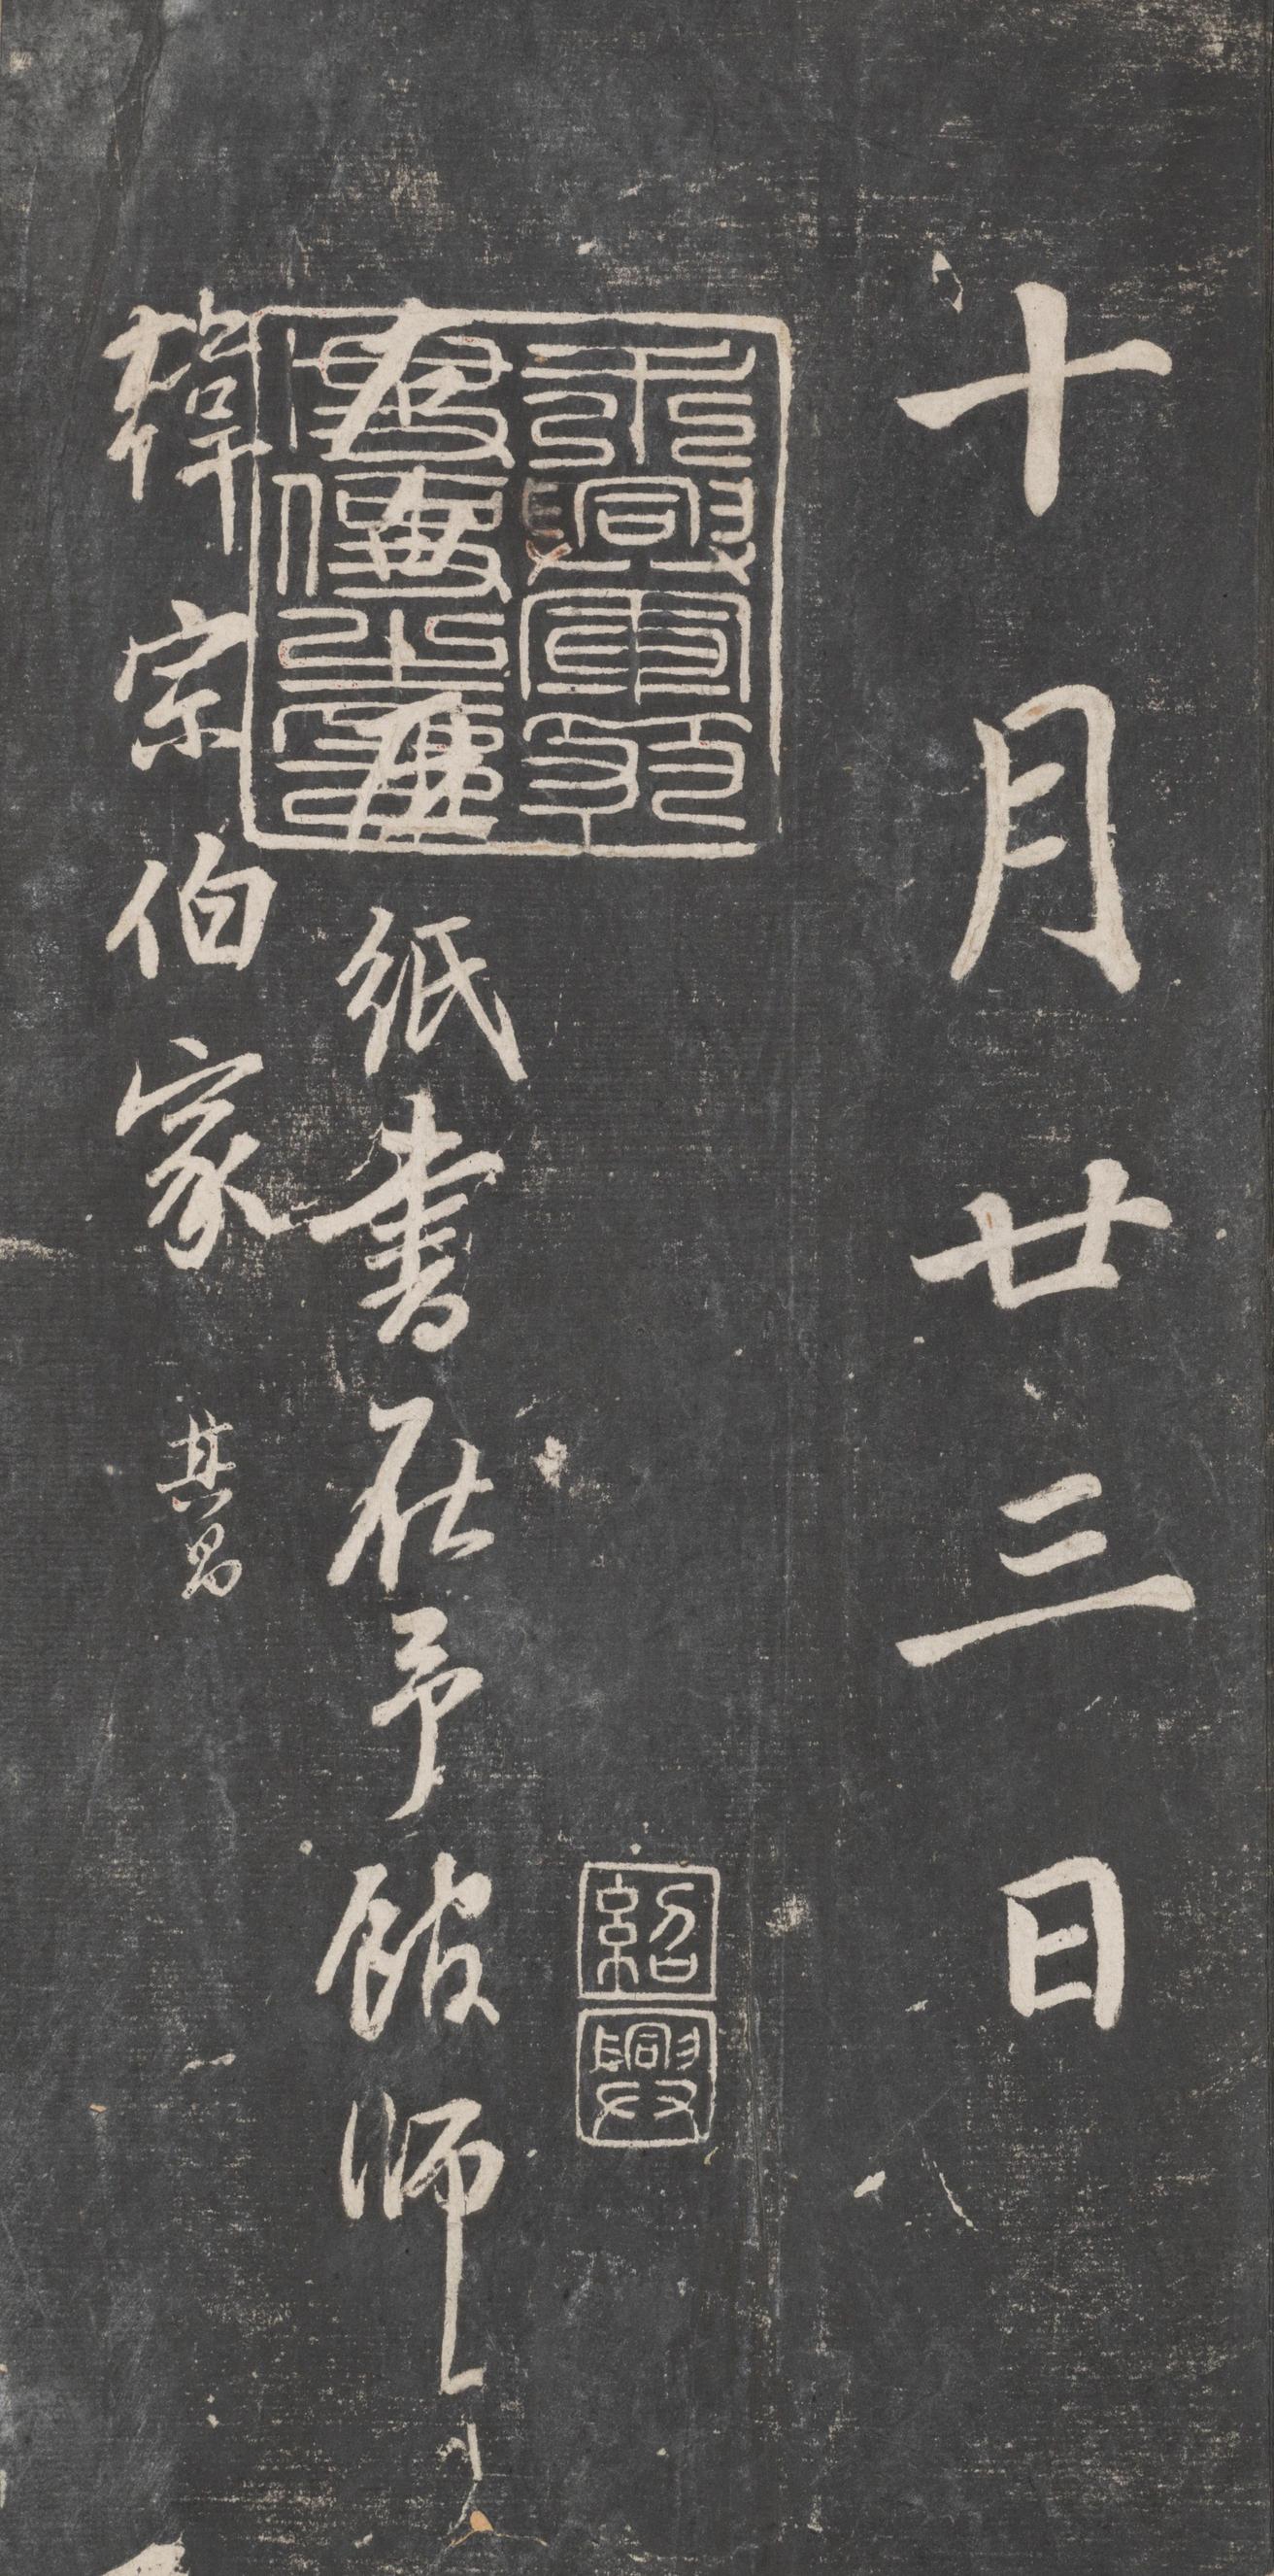 十月廿三日
紹興
右麻紙書在予館師
韓宗伯家 其昌